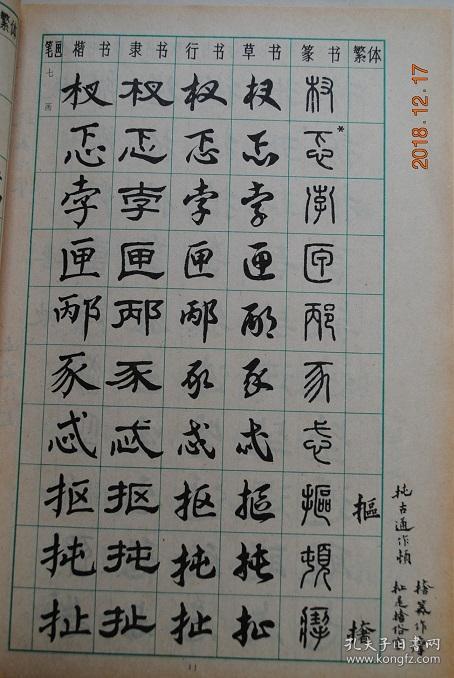 繁体
笔画 楷书 隶书 行书 草书 篆书 繁体
七画
杈 杈 杈 杈 杈
忑 忑 忑 忑 忑*
孛 孛 孛 孛 孛
匣 匣 匣 匣 匣
邴 邴 邴 邴 邴
豕 豕 豕 豕 豕
忒 忒 忒 忒 忒
抠 抠 抠 摳 摳 摳
扽 扽 扽 扽 頓
扯 扯 扯 扯 撦
扽古通作頓
扯是撦俗字
11
2018.12.17
孔夫子旧书网
www.kongfz.com